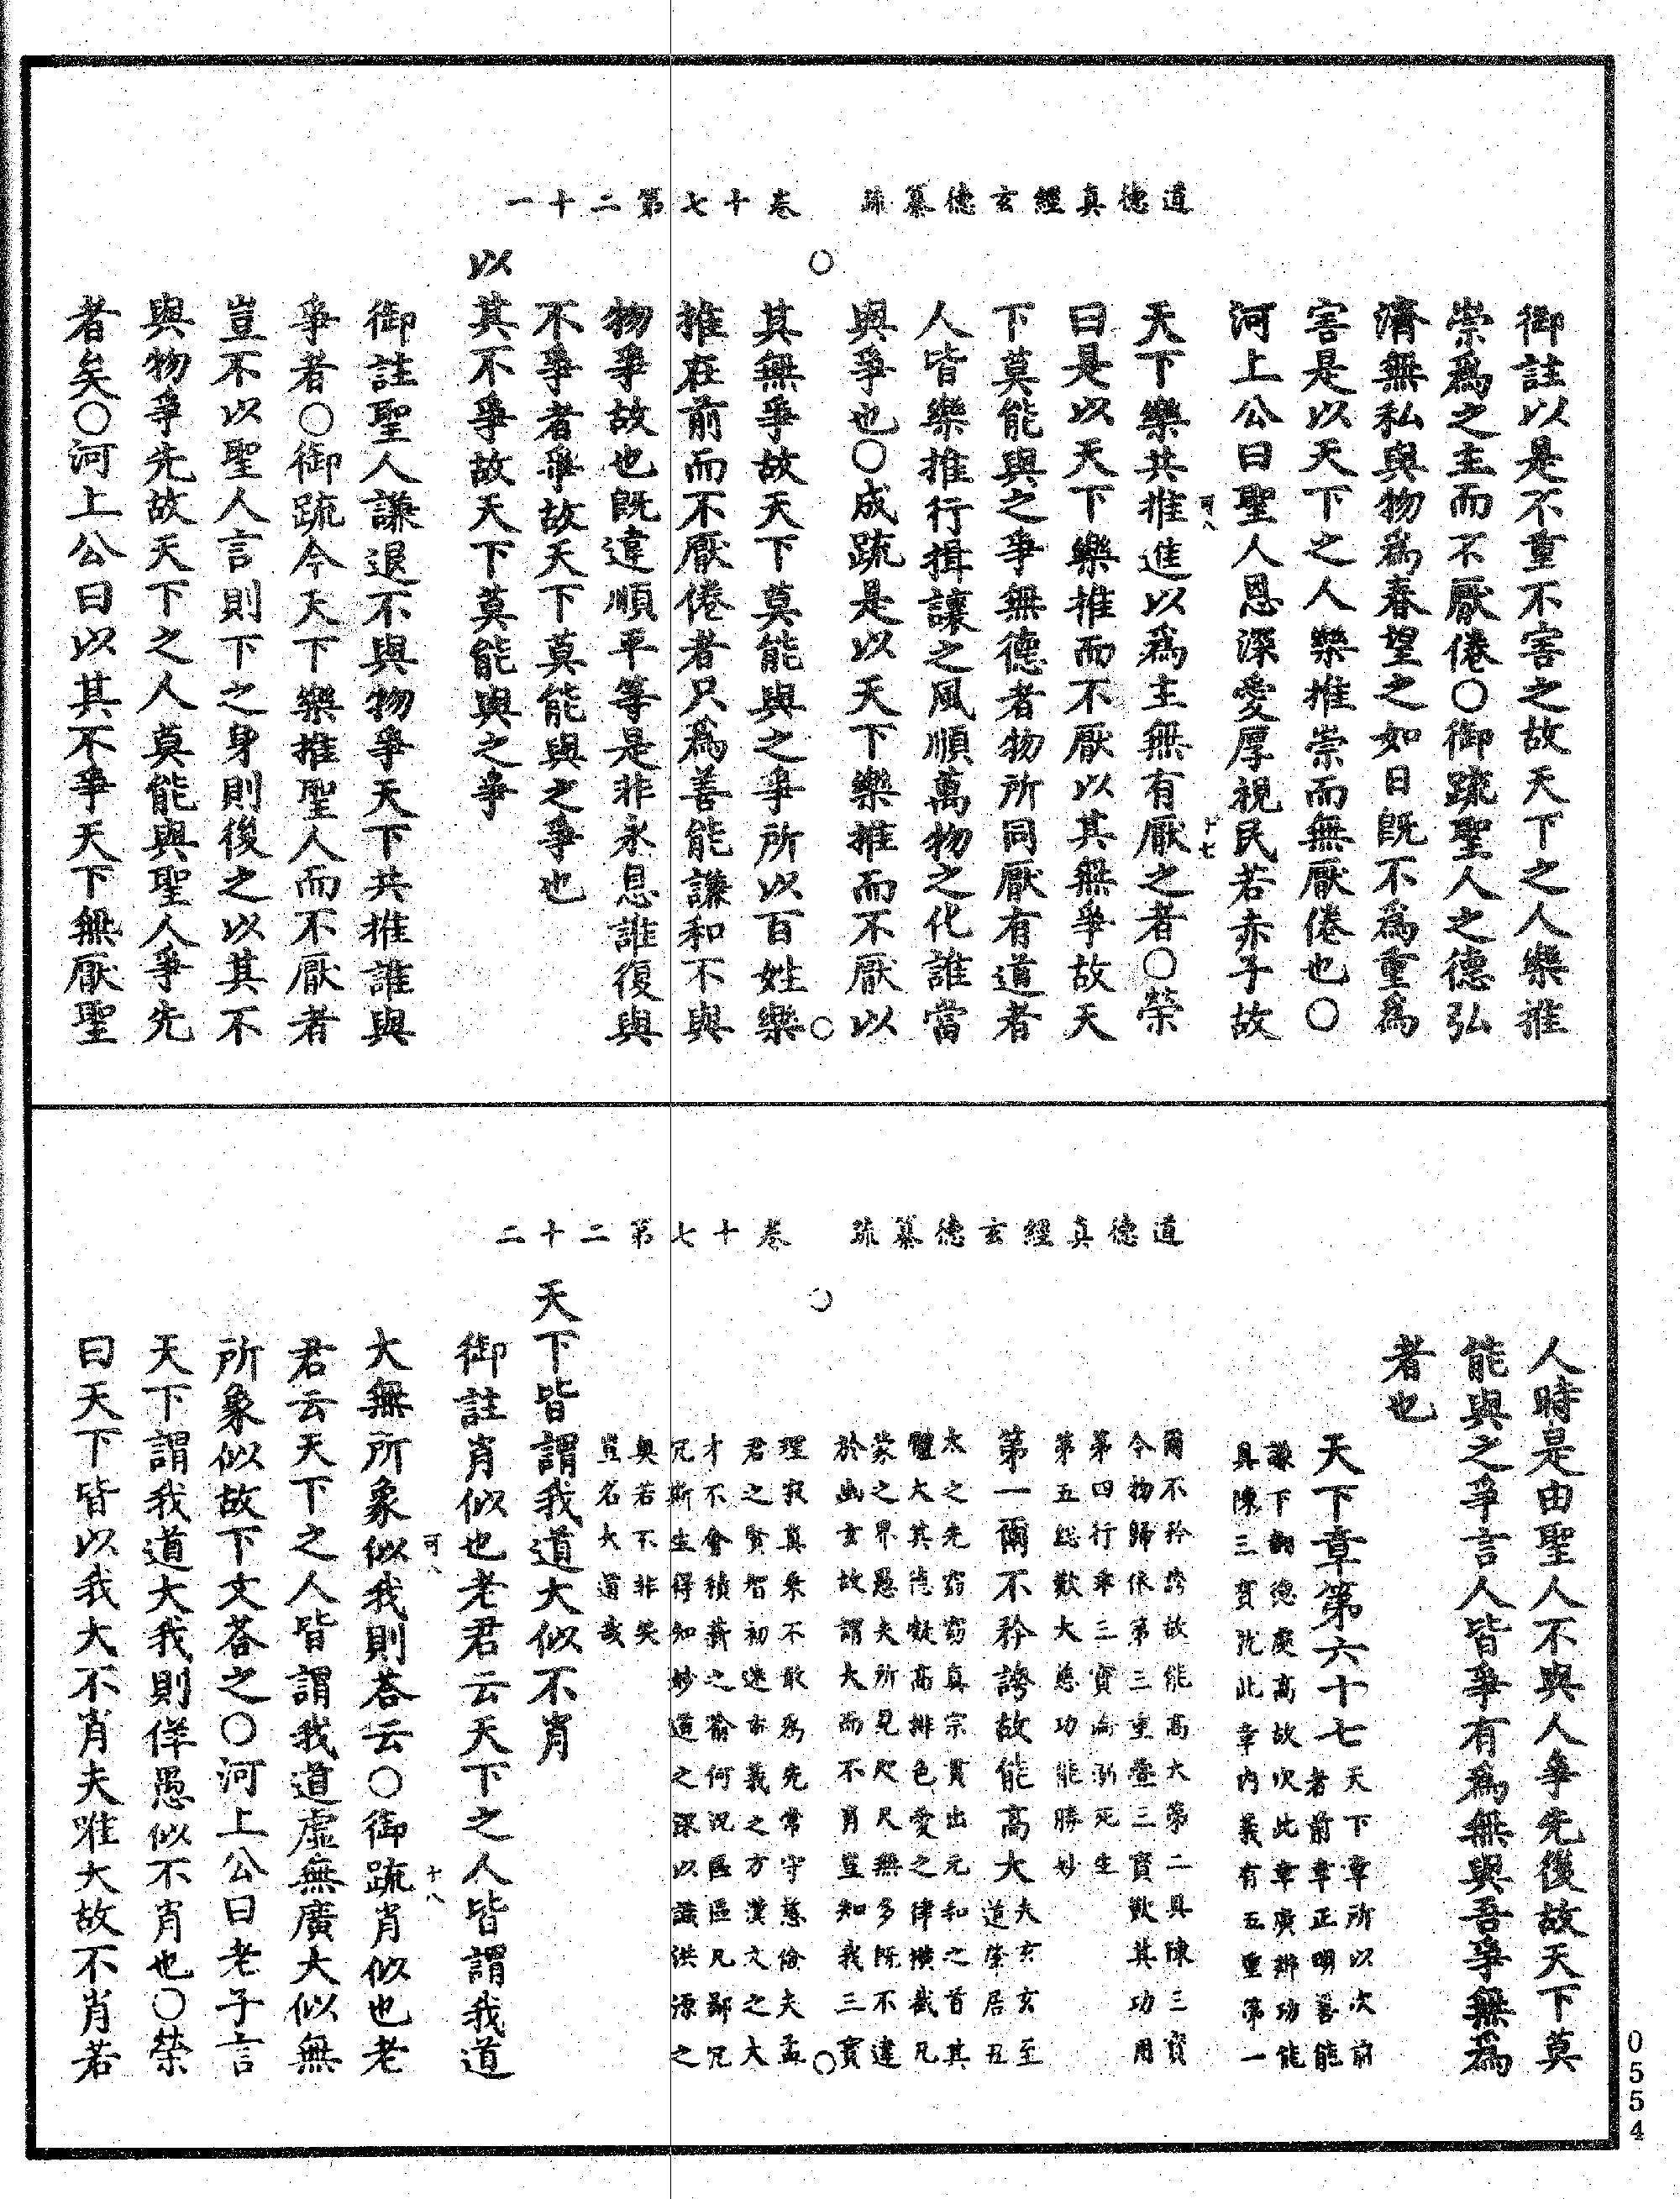 道德真經玄德纂疏　卷十七第二十一
御註以是不重不害之故天下之人樂推
崇爲之主而不厭倦〇御疏聖人之德弘
濟無私與物爲春望之如日旣不爲重爲
害是以天下之人樂推崇而無厭倦也〇
河上公曰聖人恩深愛厚視民若赤子故
可八　十七
天下樂共推進以爲主無有厭之者〇榮
曰是以天下樂推而不厭以其無爭故天
下莫能與之爭無德者物所同厭有道者
人皆樂推行揖讓之風順萬物之化誰當
與爭也〇成疏是以天下樂推而不厭以
其無爭故天下莫能與之爭所以百姓樂
推在前而不厭倦者只爲善能謙和不與
物爭故也旣違順平等是非永息誰復與
不爭者爭故天下莫能與之爭也
以其不爭故天下莫能與之爭
御註聖人謙退不與物爭天下共推誰與
爭者〇御疏今天下樂推聖人而不厭者
豈不以聖人言則下之身則後之以其不
與物爭先故天下之人莫能與聖人爭先
者矣〇河上公曰以其不爭天下無厭聖
道德真經玄德纂疏　卷十七第二十二
人時是由聖人不與人爭先後故天下莫
能與之爭言人皆爭有爲無與吾爭無爲
者也
天下章第六十七天下章所以次前
者前章正明善能
謙下翻德處高故次此章廣辯功能
具陳三寳就此章內義有五重第一
爾不矜誇故能高大第二具陳三寳
令物歸依第三重疊三寳歎其功用
第四行乖三寳淪溺死生
第五總歎大慈功能勝妙
第一爾不矜誇故能高大夫玄玄至
道肇居丑
太之先窈窈真宗貫出元和之首其
體大其德凝高排色愛之律懺截凡
蒙之界愚夫所見咫尺無多旣不達
於幽玄故謂大而不肖豈知我三寳
理寂真乘不敢爲先常守慈儉夫孟
君之賢智初迷市義之方漢文之大
才不會積薪之喻何況區區凡鄙冗
冗斯生得知妙道之深以識洪源之
奧若不非笑
豈名大道哉
天下皆謂我道大似不肖
御註肖似也老君云天下之人皆謂我道
可八　十八
大無所象似我則荅云〇御疏肖似也老
君云天下之人皆謂我道虛無廣大似無
所象似故下文荅之〇河上公曰老子言
天下謂我道大我則佯愚似不肖也〇榮
曰天下皆以我大不肖夫唯大故不肖若
0554